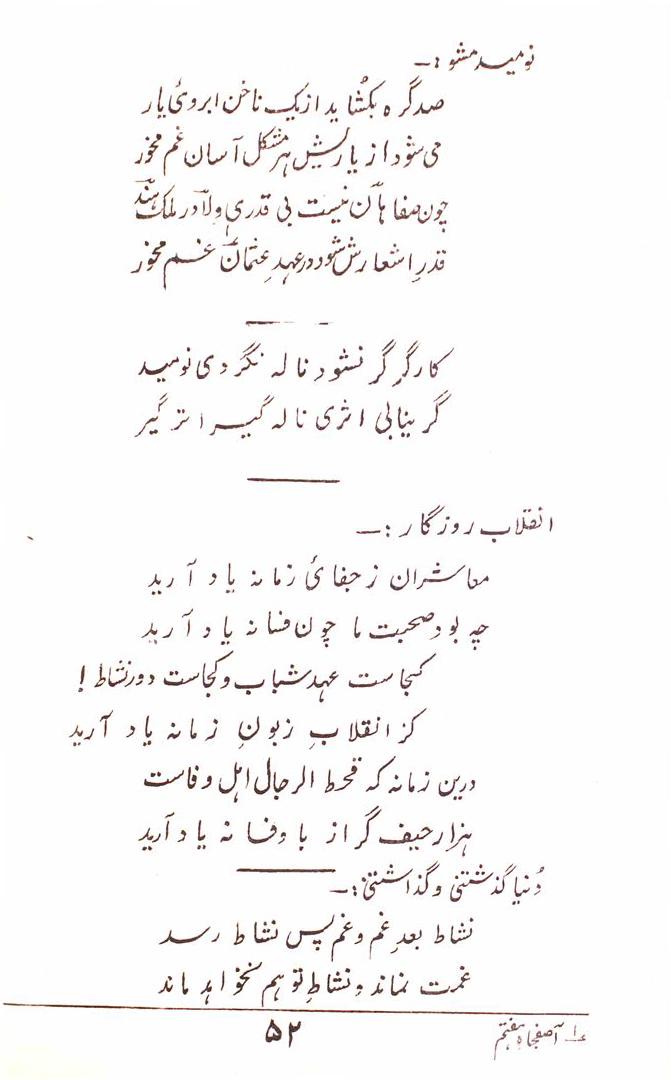 نومید مشو :—
صد گره بکشاید از یک ناخن ابروئ یار
می شود از یاریش هر مشکل آسان غم مخور
چون صفاهان نیست بی قدری ولا در ملک هند
قدرِ اشعارش شود در عہدِ عثمانؔ غم مخور
کارگر گر نشود ناله نگردی نومید
گر بنالی اثری ناله گیرا تر گیر
انقلاب روزگار :—
معاشران ز جفائ زمانه یاد آرید
چه بود صحبت ما چون فسانه یاد آرید
کجاست عہد شباب و کجاست دور نشاط !
کز انقلابِ زبونِ زمانه یاد آرید
درین زمانه که قحط الرجال اہل وفاست
ہزار حیف گر از با وفا نه یاد آرید
دُنیا گذشتنی و گذاشتنی :—
نشاط بعدِ غم و غم پس نشاط رسد
غمت نماند و نشاطِ تو هم نخواہد ماند
۱؎ آصفجاه ہفتم
۵۲